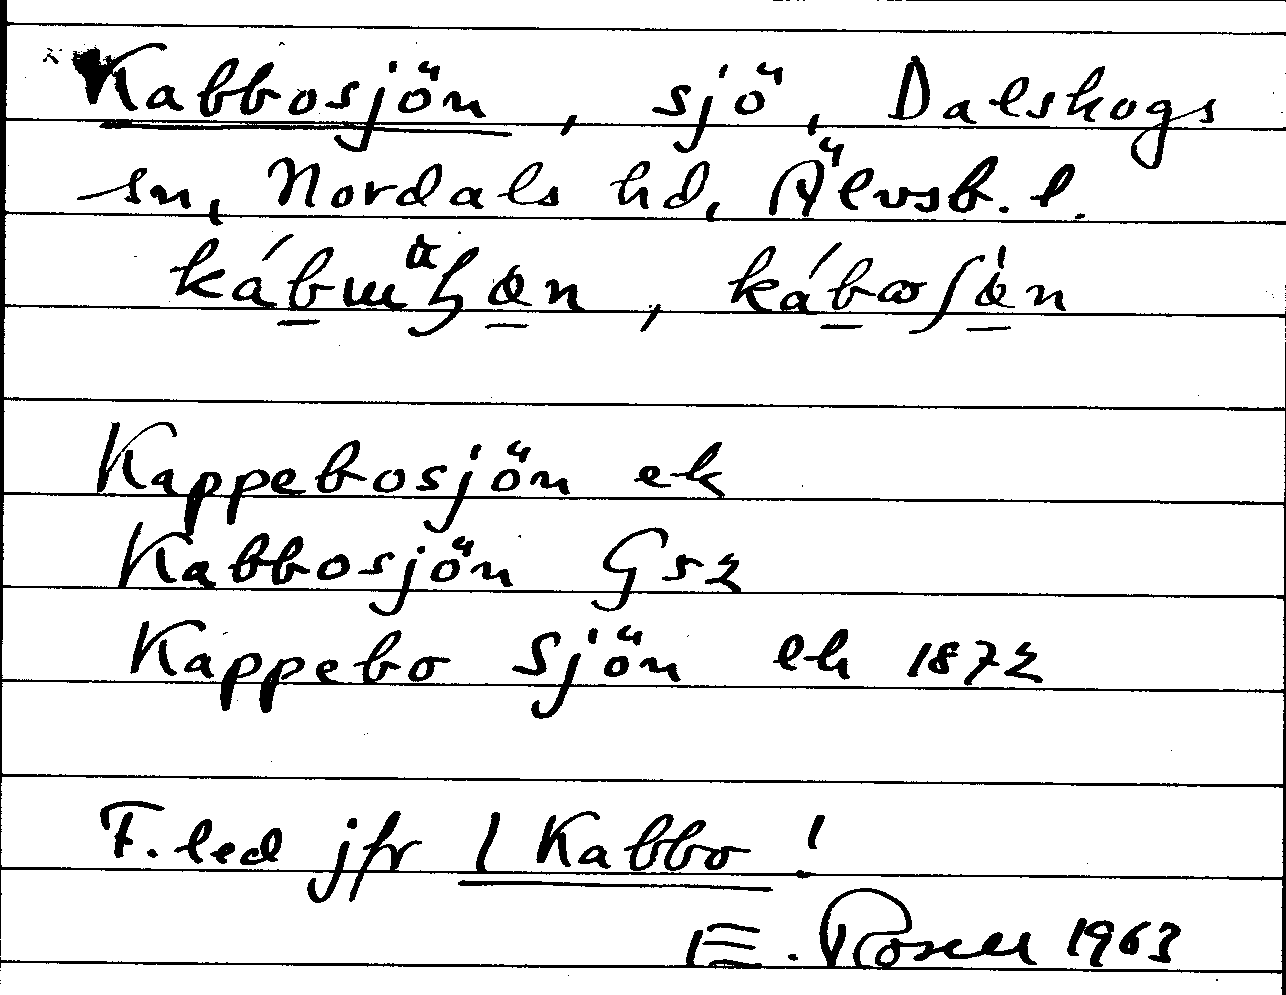 Kabbosjön, sjö, Dalskogs
sn, Nordals hd, Älvsb. l.
Kappebosjön ek
Kabbosjön Gsz
Kappebo Sjön ek 1872
F. led jfr 1 Kabbo !
E. Rosell 1963